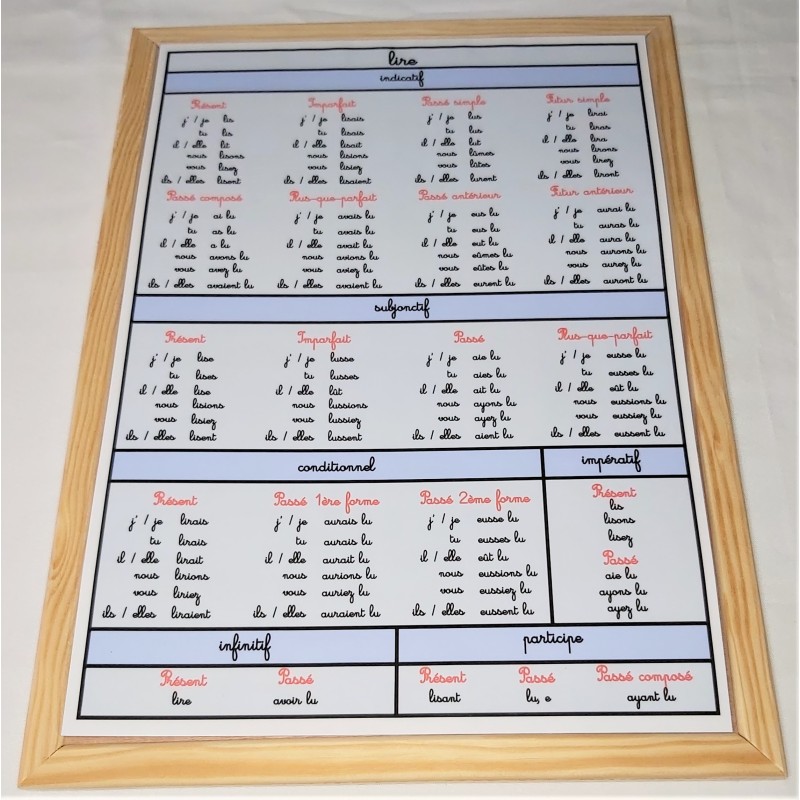 lire
indicatif
Présent Imparfait Passé simple Futur simple
j' / je lis j' / je lisais j' / je lus j' / je lirai
tu lis tu lisais tu lus tu liras
il / elle lit il / elle lisait il / elle lut il / elle lira
nous lisons nous lisions nous lûmes nous lirons
vous lisez vous lisiez vous lûtes vous lirez
ils / elles lisent ils / elles lisaient ils / elles lurent ils / elles liront
Passé composé Plus-que-parfait Passé antérieur Futur antérieur
j' / je ai lu j' / je avais lu j' / je eus lu j' / je aurai lu
tu as lu tu avais lu tu eus lu tu auras lu
il / elle a lu il / elle avait lu il / elle eut lu il / elle aura lu
nous avons lu nous avions lu nous eûmes lu nous aurons lu
vous avez lu vous aviez lu vous eûtes lu vous aurez lu
ils / elles avaient lu ils / elles avaient lu ils / elles eurent lu ils / elles auront lu
subjonctif
Présent Imparfait Passé Plus-que-parfait
j' / je lise j' / je lusse j' / je aie lu j' / je eusse lu
tu lises tu lusses tu aies lu tu eusses lu
il / elle lise il / elle lût il / elle ait lu il / elle eût lu
nous lisions nous lussions nous ayons lu nous eussions lu
vous lisiez vous lussiez vous ayez lu vous eussiez lu
ils / elles lisent ils / elles lussent ils / elles aient lu ils / elles eussent lu
conditionnel
Présent Passé 1ère forme Passé 2ème forme
j' / je lirais j' / je aurais lu j' / je eusse lu
tu lirais tu aurais lu tu eusses lu
il / elle lirait il / elle aurait lu il / elle eût lu
nous lirions nous aurions lu nous eussions lu
vous liriez vous auriez lu vous eussiez lu
ils / elles liraient ils / elles auraient lu ils / elles eussent lu
impératif
Présent
lis
lisons
lisez
Passé
aie lu
ayons lu
ayez lu
infinitif
Présent Passé
lire avoir lu
participe
Présent Passé Passé composé
lisant lu, e ayant lu